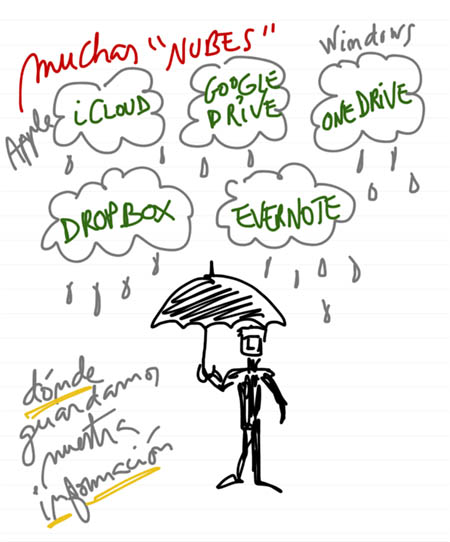 muchas "NUBES"
Windows
Apple
iCLOUD
GOOGLE
DRIVE
ONEDRIVE
DROPBOX
EVERNOTE
dónde
guardamos
nuestra
información